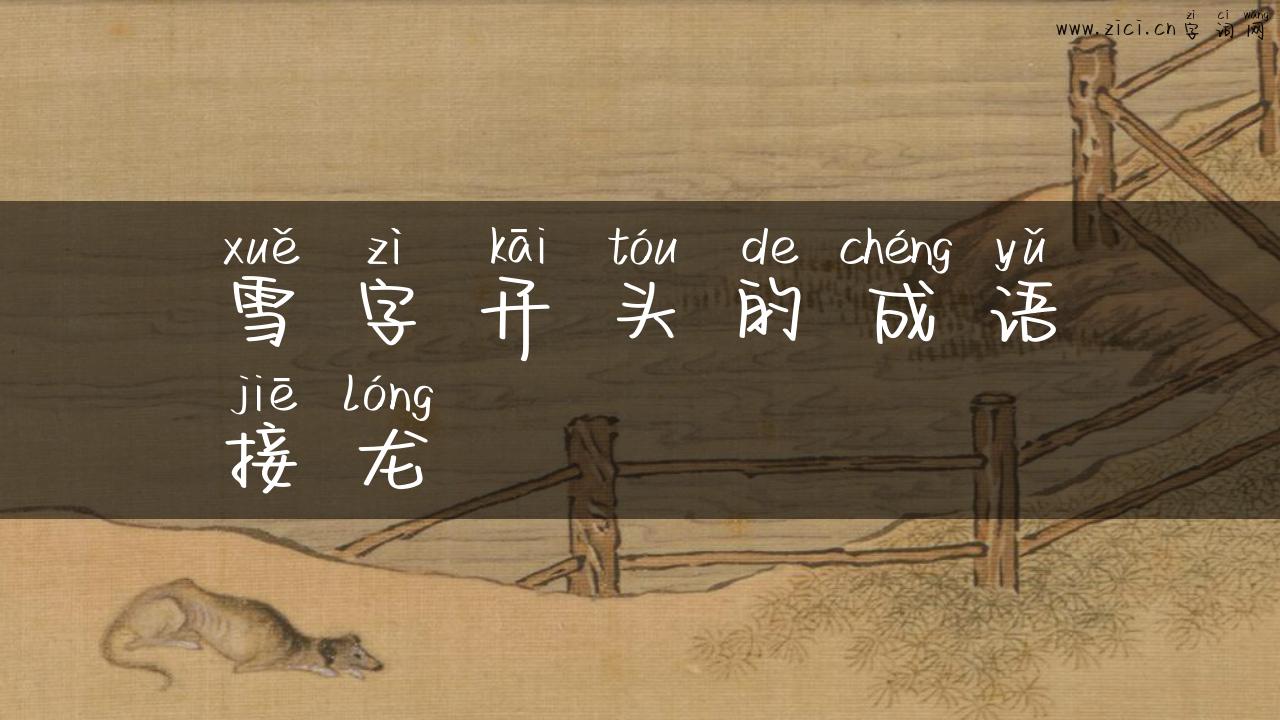 zì cí wǎng
www.zici.cn字词网
xuě zì kāi tóu de chéng yǔ
雪字开头的成语
jiē lóng
接龙